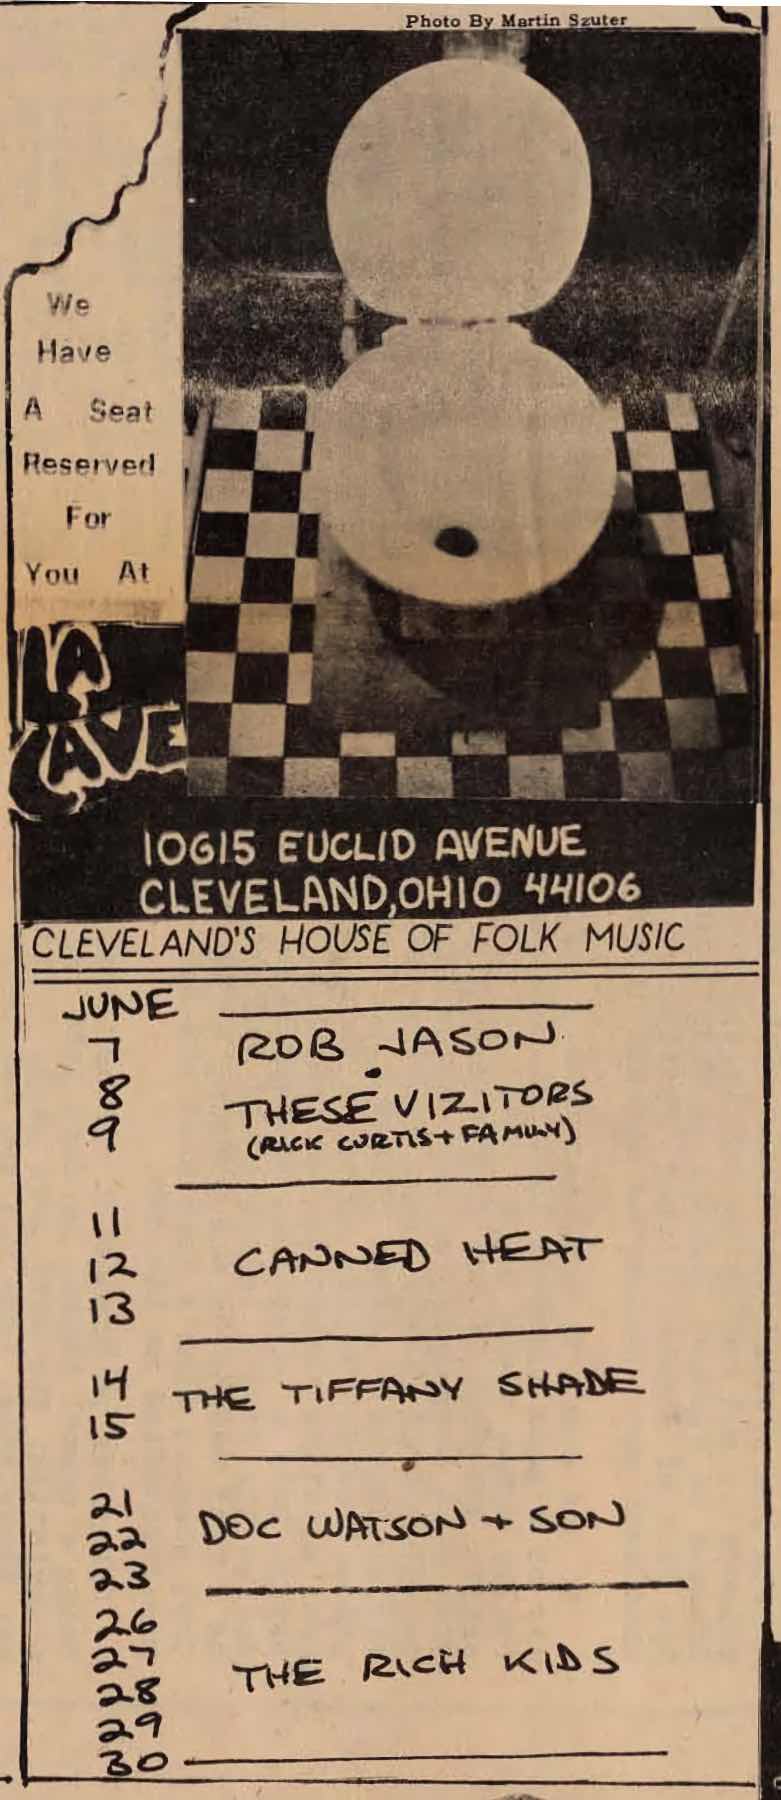 Photo By Martin Szuter
We
Have
A Seat
Reserved
For
You At
LA
CAVE
10615 EUCLID AVENUE
CLEVELAND, OHIO 44106
CLEVELAND'S HOUSE OF FOLK MUSIC
JUNE
7 ROB JASON
8 THESE VIZITORS
9 (RICK CURTIS + FAMILY)
11
12 CANNED HEAT
13
14 THE TIFFANY SHADE
15
21
22 DOC WATSON + SON
23
26
27 THE RICH KIDS
28
29
30